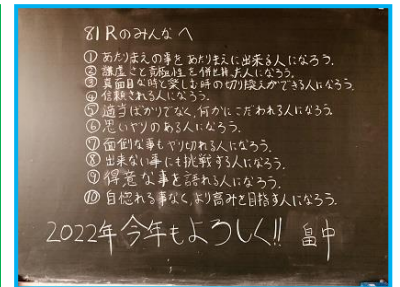 81Rのみんなへ
① あたりまえの事をあたりまえに出来る人になろう。
② 謙虚さと貪欲性を併せ持った人になろう。
③ 真面目な時と楽しむ時の切り換えができる人になろう。
④ 信頼される人になろう。
⑤ 適当ばかりでなく、何かにこだわれる人になろう。
⑥ 思いやりのある人になろう。
⑦ 面倒な事もやり切れる人になろう。
⑧ 出来ない事にも挑戦する人になろう。
⑨ 得意な事を語れる人になろう。
⑩ 自惚れる事なく、より高みを目指す人になろう。
2022年今年もよろしく!! 畠中